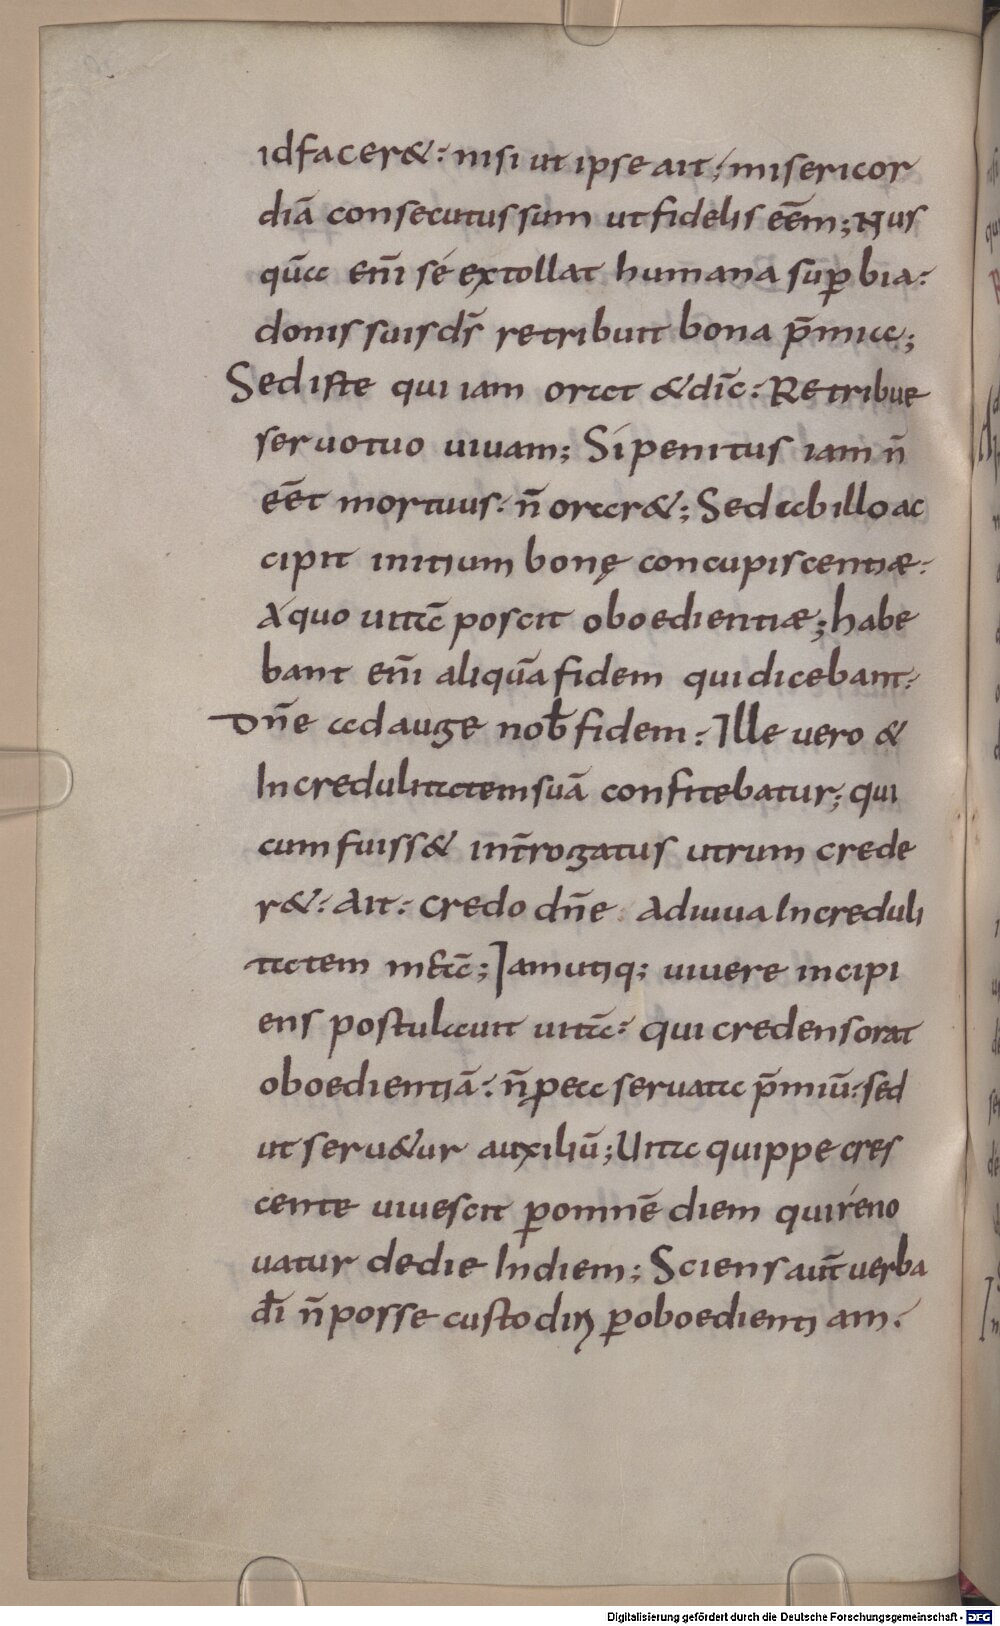 idfacer&· nisi ut ipse ait; misericor
diā consecutus sum ut fidelis eēm; Nus
qūa enī sé extollat humana sup̄bia·
donis suis d̄s retribuit bona p̄mia;
Sed iste qui iam orat & dic̄· Retribue
servo tuo uiuam; Si penitus iam n̄
eēt mortuus· n̄ orar&; Sed ab illo ac
cipit initium bonę concupiscentiæ·
A quo uitā poscit oboedientiæ; habe
bant enī aliquā fidem qui dicebant·
Dn̄e adauge nob̄ fidem· Ille uero &
Incredulitatem suā confitebatur; qui
cum fuiss& int̄rogatus utrum crede
r&· Ait· credo dn̄e adiuua Increduli
tatem meā; Iam utiq; uiuere incipi
ens postulauit uitā· qui credens orat
oboedientiā· n̄ p ea seruata p̄miū· sed
ut seru&ur auxiliū; Uita quippe cres
cente uiuescit p̄ omnē diem qui reno
uatur de die In diem; Sciens aut̄ uerba
dī n̄ posse custodiri p̄ oboedientiam·
Digitalisierung gefördert durch die Deutsche Forschungsgemeinschaft - DFG